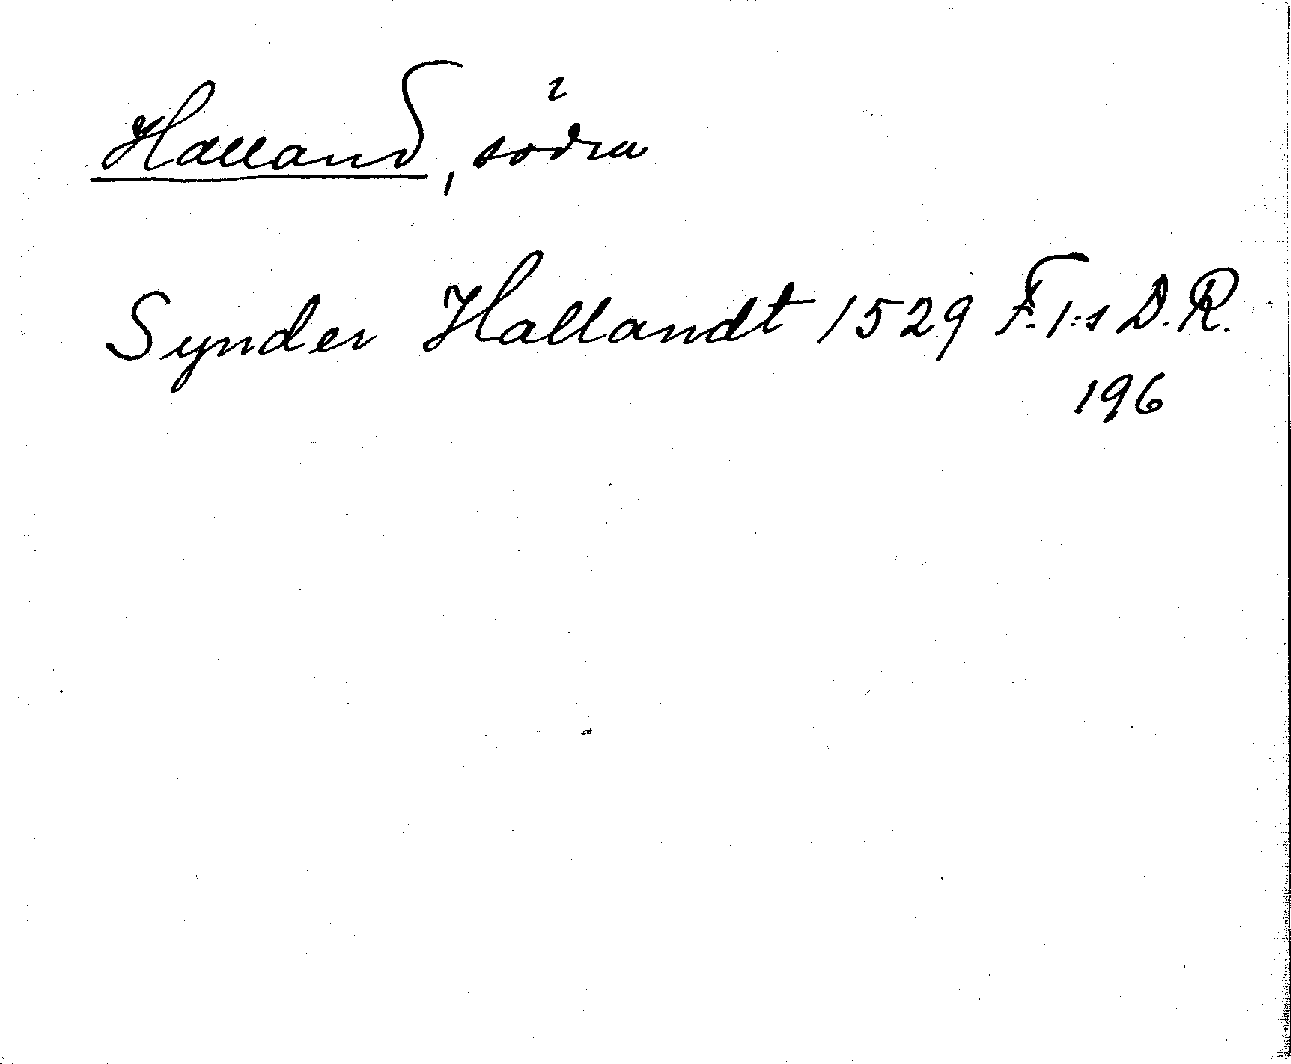 Halland, södra
Synder Hallandt 1529 F. I:s D.R.
196